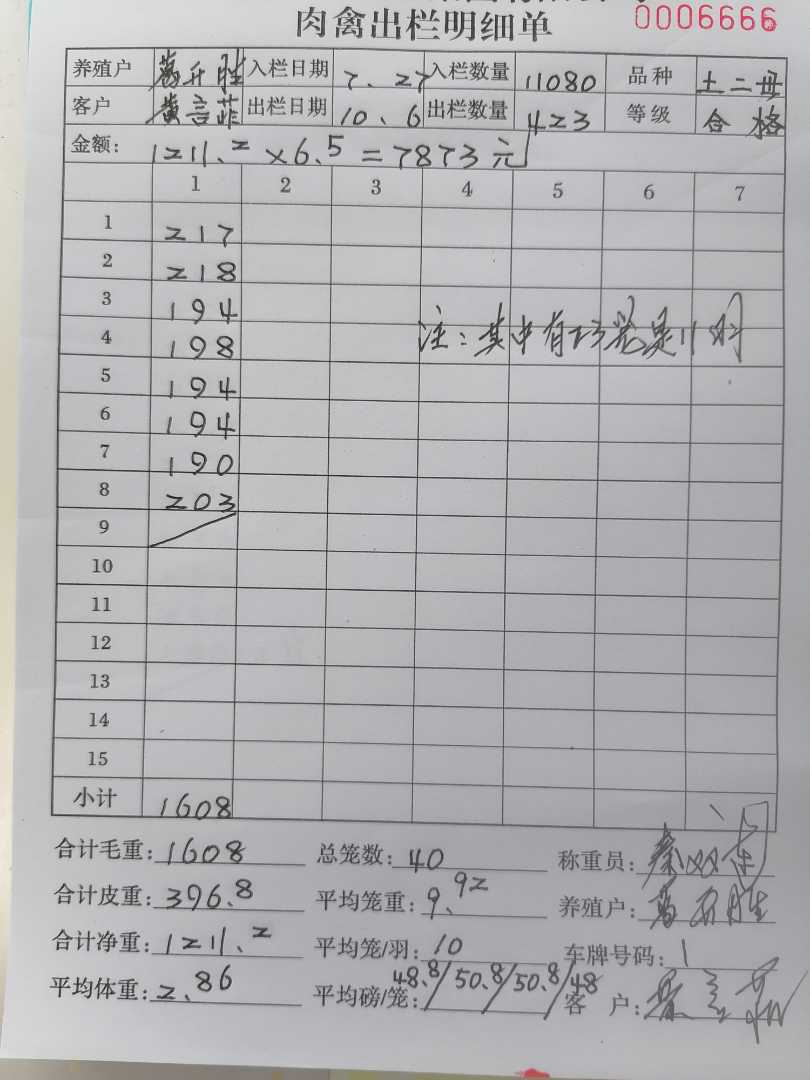 肉禽出栏明细单 0006666
养殖户 葛升胜 入栏日期 7、27 入栏数量 11080 品种 土二毋
客户 黄言菲 出栏日期 10、6 出栏数量 423 等级 合格
金额: 1211.2×6.5=7873元
1 2 3 4 5 6 7
1 217
2 218
3 194
4 198 注:其中有23笼是11只
5 194
6 194
7 190
8 203
9
10
11
12
13
14
15
小计 1608
合计毛重:1608 总笼数:40 称重员:
合计皮重:396.8 平均笼重:9.92 养殖户:葛升胜
合计净重:1211.2 平均笼/羽:10 车牌号码:1
平均体重:2.86 平均磅/笼:48.8/50.8/50.8/48 客 户:黄言菲